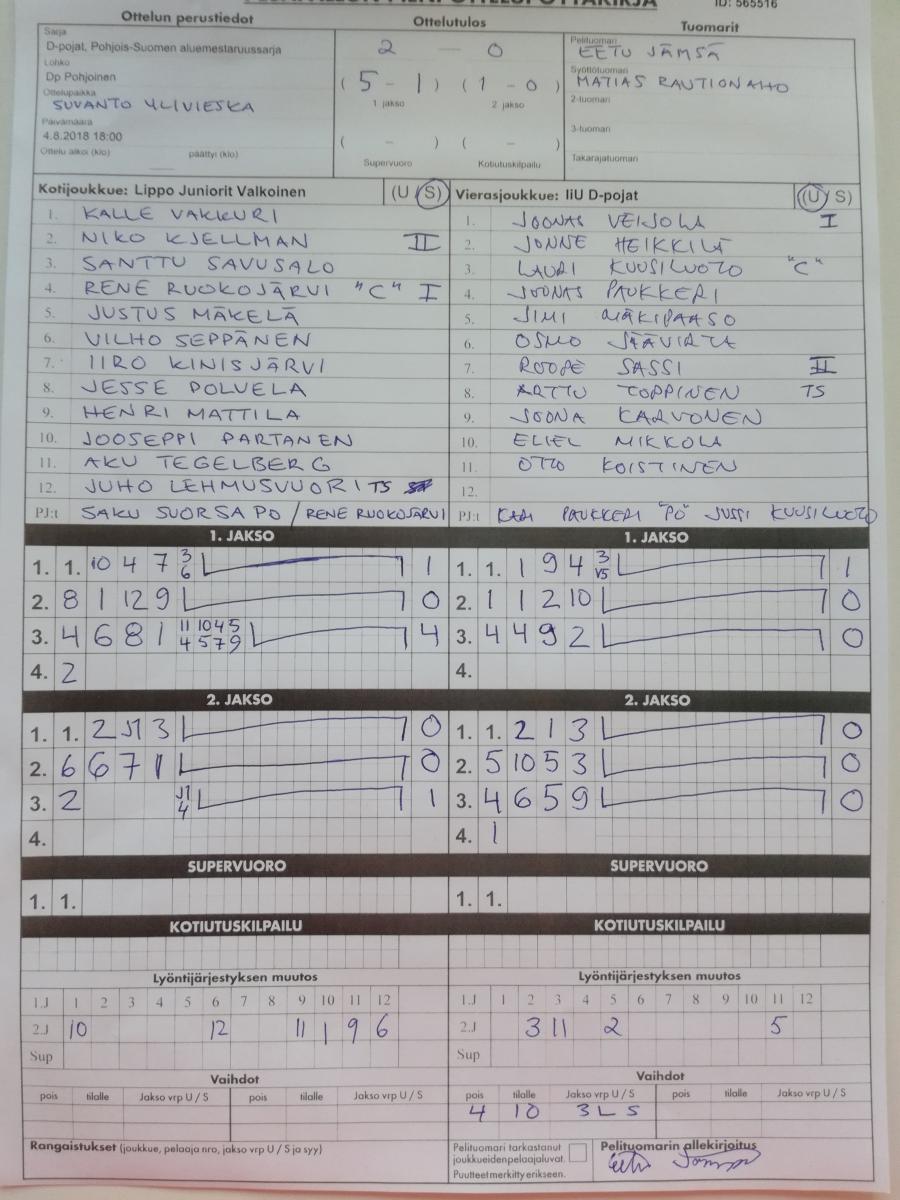 PESÄPALLON PIENPÖYTÄKIRJA
ID: 565516
Ottelun perustiedot
Ottelutulos
Tuomarit
Sarja
D-pojat, Pohjois-Suomen aluemestaruussarja
Lohko
Dp Pohjoinen
Ottelupaikka
SUVANTO YLIVIESKA
Päivämäärä
4.8.2018 18:00
Ottelu alkoi (klo) päättyi (klo)
2 – 0
(5 – 1) (1 – 0)
1 jakso 2 jakso
( – ) ( – )
Supervuoro Kotiutuskilpailu
Pelituomari
EETU JÄMSÄ
Syöttötuomari
MATIAS RAUTIONAHO
2-tuomari
3-tuomari
Takarajatuomari
Kotijoukkue: Lippo Juniorit Valkoinen (U S)
1. KALLE VAKKURI
2. NIKO KJELLMAN II
3. SANTTU SAVUSALO
4. RENE RUOKOJÄRVI "C" I
5. JUSTUS MÄKELÄ
6. VILHO SEPPÄNEN
7. IIRO KINISJÄRVI
8. JESSE POLVELA
9. HENRI MATTILA
10. JOOSEPPI PARTANEN
11. AKU TEGELBERG
12. JUHO LEHMUSVUORI TS
PJ:t SAKU SUORSA PO / RENE RUOKOJÄRVI
Vierasjoukkue: IiU D-pojat (U S)
1. JOONAS VEIJOLA I
2. JONNE HEIKKILÄ
3. LAURI KUUSILUOTO "C"
4. JOONAS PAUKKERI
5. JIMI MÄKIPAASO
6. OSMO JÄÄVIRTA
7. ROOPE SASSI II
8. ARTTU TOPPINEN TS
9. JOONA KARVONEN
10. ELIEL MIKKOLA
11. OTTO KOISTINEN
12.
PJ:t KARI PAUKKERI "PÖ" JUSSI KUUSILUOTO
1. JAKSO
1. 1. 10 4 7 3 6 1
2. 8 1 12 9 0
3. 4 6 8 1 11 10 4 5 4 5 7 9 4
4. 2
1. JAKSO
1. 1. 1 9 4 3 V5 1
2. 1 1 2 10 0
3. 4 4 9 2 0
4.
2. JAKSO
1. 1. 2 J1 3 0
2. 6 6 7 1 0
3. 2 J1 4 1
4.
2. JAKSO
1. 1. 2 1 3 0
2. 5 10 5 3 0
3. 4 6 5 9 0
4. 1
SUPERVUORO
1. 1.
SUPERVUORO
1. 1.
KOTIUTUSKILPAILU
KOTIUTUSKILPAILU
Lyöntijärjestyksen muutos
1.J 1 2 3 4 5 6 7 8 9 10 11 12
2.J 10 12 11 1 9 6
Sup
Lyöntijärjestyksen muutos
1.J 1 2 3 4 5 6 7 8 9 10 11 12
2.J 3 11 2 5
Sup
Vaihdot
pois tilalle Jakso vrp U / S pois tilalle Jakso vrp U / S
Vaihdot
pois tilalle Jakso vrp U / S pois tilalle Jakso vrp U / S
4 10 3 L S
Rangaistukset (joukkue, pelaaja nro, jakso vrp U / S ja syy)
Pelituomari tarkastanut
joukkueiden pelaajaluvat.
Puutteet merkitty erikseen.
Pelituomarin allekirjoitus
Eetu Jämsä